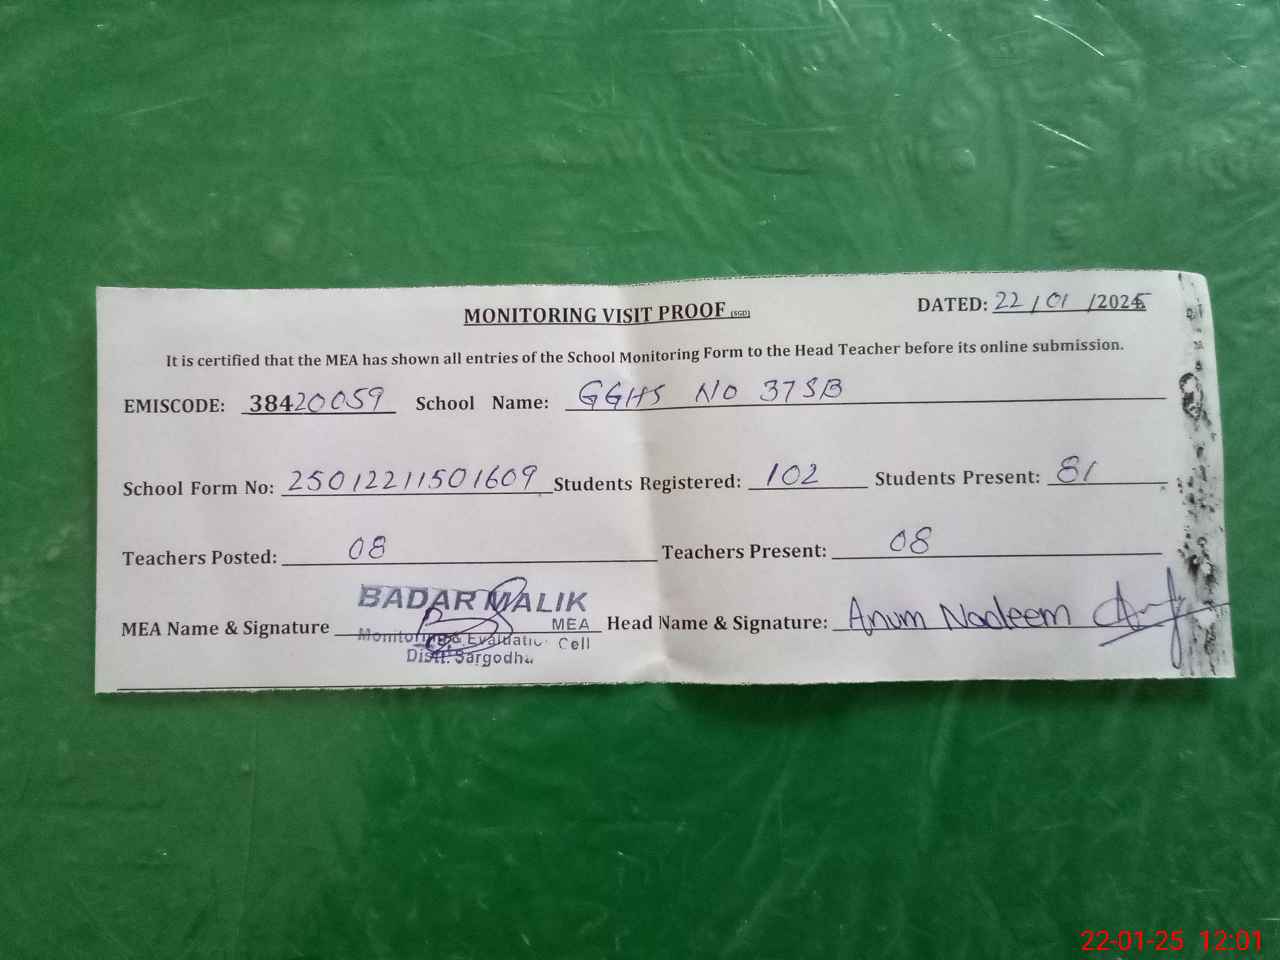 MONITORING VISIT PROOF (SGD)
DATED: 22/01/2025
It is certified that the MEA has shown all entries of the School Monitoring Form to the Head Teacher before its online submission.
EMISCODE: 38420059 School Name: GGHS NO 37SB
School Form No: 25012211501609 Students Registered: 102 Students Present: 81
Teachers Posted: 08 Teachers Present: 08
BADAR MALIK
MEA Name & Signature MEA Head Name & Signature: Anum Nadeem
Monitoring & Evaluation Cell
Distt. Sargodha
22-01-25 12:01